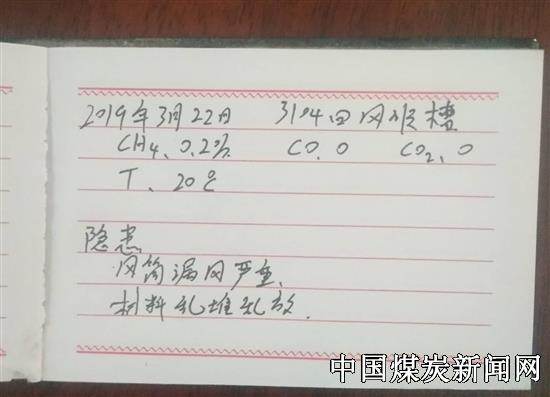 2019年3月22日 3104回风顺槽
CH4、0.2% CO、0 CO2、0
T、20℃
隐患
风筒漏风严重、
材料乱堆乱放、
中国煤炭新闻网